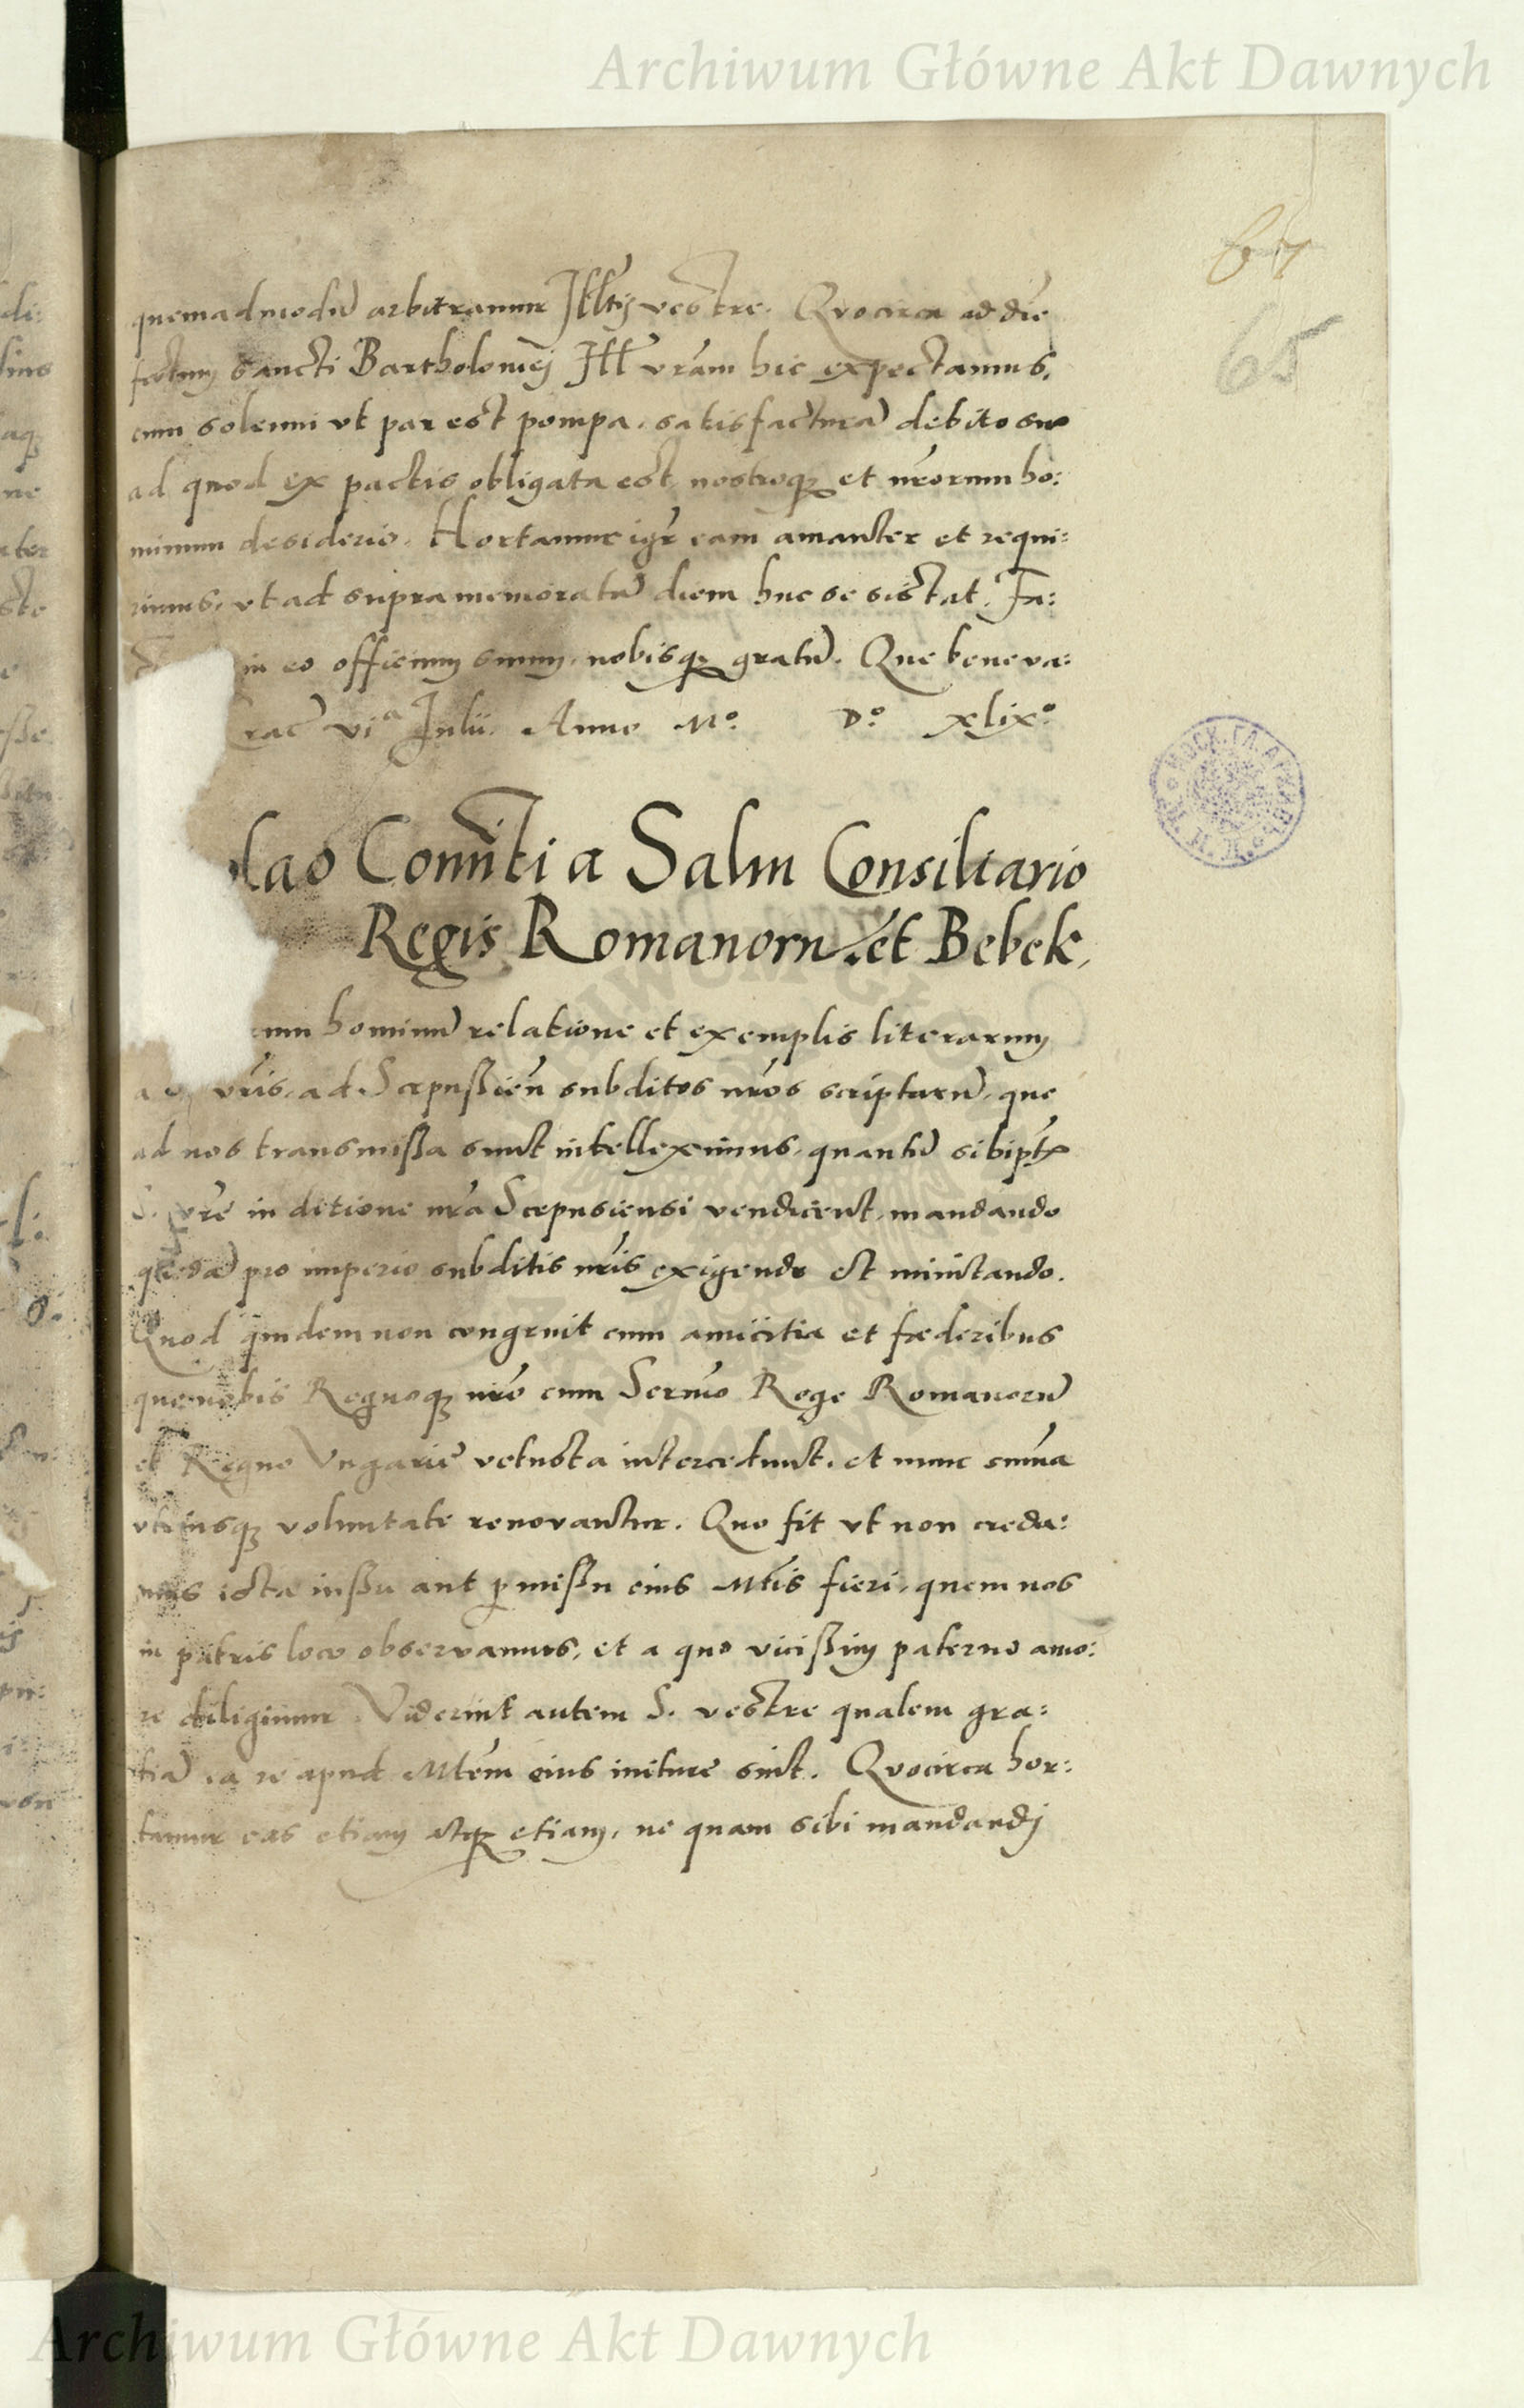 Archiwum Główne Akt Dawnych
67
65
quemadmodū arbitramur Illt̄ꝭ vestre. Quocirca ad diē
festum Sancti Bartholomej Ill vr̄am hic expectamus,
cum solenni vt par est pompa, satisfacturā debito suo
ad quod ex pactis obligata est, nostroqꝫ et nr̄orum ho:
minum desiderio. Hortamur igr̄ eam amanter et requi:
rimus, vt ad supramemoratū diem huc se sistat. Fa:
in eo officium suum, nobisqꝫ gratū. Que bene va:
rac̄ viᵃ Julii. Anno Mº Dº xlixº
lao Com̄iti a Salm Consiliario
Regis Romanorū et Bebek,
rum hominū relatione et exemplis literarum
vr̄is, ad Scepussien̄ subditos nr̄os scriptarū, que
ad nos transmissa sunt intelleximus, quantū sibi
S. vr̄e in ditione nr̄a Scepusiensi vendicent, mandando
quedā pro imperio subditis nr̄is exigendo et minitando.
Quod quidem non congruit cum amicitia et fæderibus
que nobis Regnoqꝫ nr̄o cum Serm̄o Rege Romanorū
et Regno Vngarie vetusta intercedunt, et nunc sum̄a
vtriusqꝫ voluntate renovantur. Quo fit vt non creda:
mus ista iussu aut ꝑmissu eius Mt̄is fieri, quem nos
in patris loco observamus, et a quo vicissim paterno amo:
re diligimur. Viderint autem S. vestre qualem gra:
tiā ea re apud Mt̄em eius initure sint. Quocirca hor:
tamur eas etiam atqꝫ etiam, ne quam sibi mandandj
Archiwum Główne Akt Dawnych